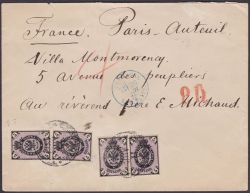 France. Paris-Auteuil
Villa Montmorency
5 avenue des peupliers
Au révérend père E. Michaud.